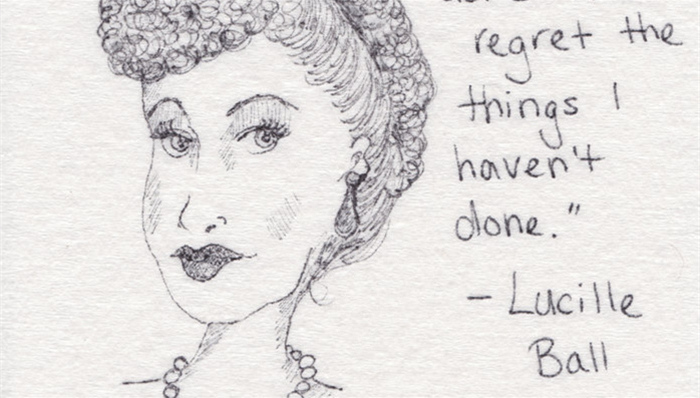 regret the
things I
haven't
done."
- Lucille
Ball